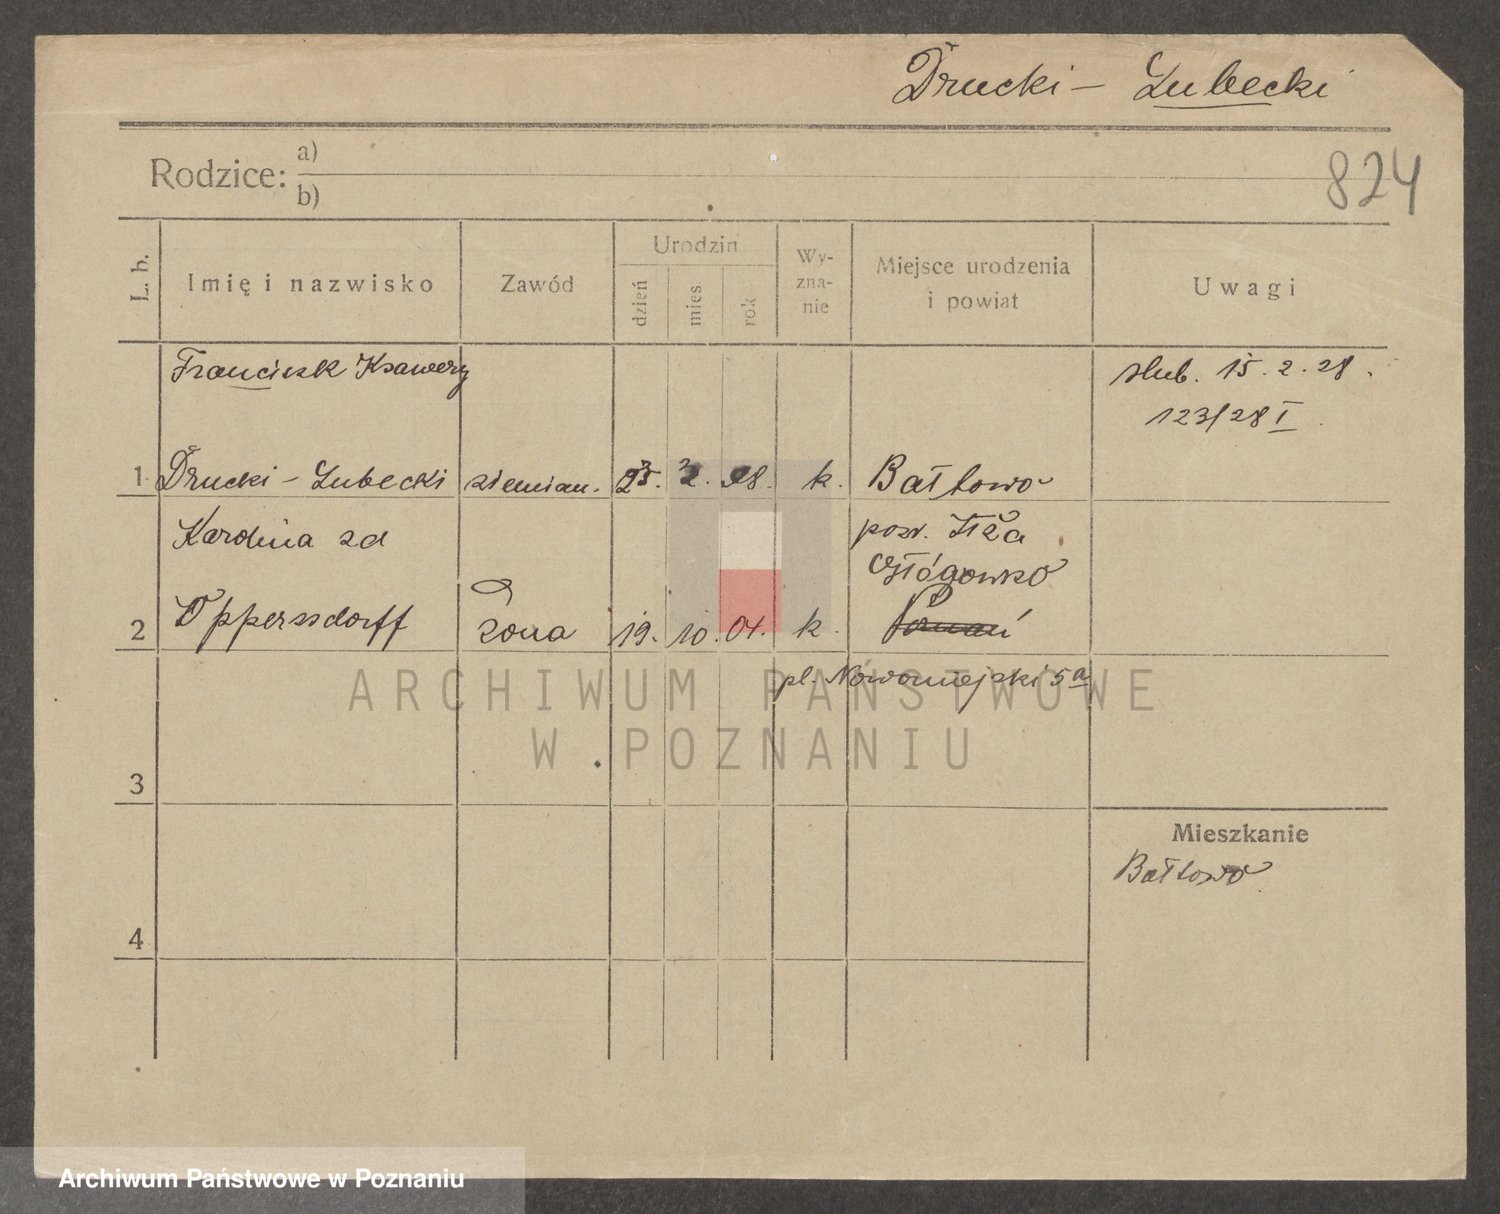 Drucki – Lubecki
Rodzice: a)
b)
824
L. b.
Imię i nazwisko
Zawód
Urodzin
dzień
mies.
rok
Wy-
zna-
nie
Miejsce urodzenia
i powiat
Uwagi
Franciszk Ksawery
ślub. 15. 2. 28.
123/28 I
1 Drucki – Lubecki ziemian. 23. 98. k. Bałtowo
Karolina zd pow. Iłża
Głógowko
2 Oppersdorff żona 19. 10. 04. k. Poznań
pl. Nowomiejski 5a
ARCHIWUM PAŃSTWOWE
W POZNANIU
3
Mieszkanie
Bałtowo
4
Archiwum Państwowe w Poznaniu